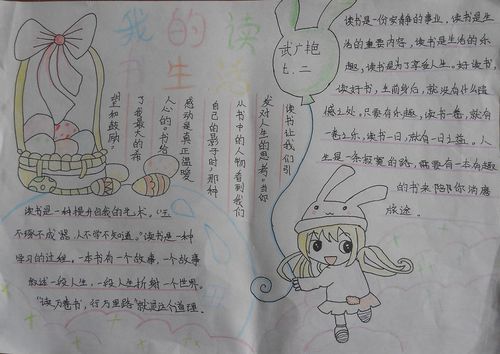 我的读
书生活
武广艳
七.二
读书让我们引
发对人生的思考。当你
从书中的人物看到我们
自己的影子时,那种
感动是真正温暖
人心的。书给
了我最大的希
望和鼓励。
读书是一种提升自我的艺术。“玉
不琢不成器,人不学不知道。”读书是一种
学习的过程。一本书有一个故事,一个故事
叙述一段人生,一段人生折射一个世界。
“读万卷书,行万里路”就是这个道理.
读书是一份安静的事业,读书是生
活的重要内容,读书是生活的乐
趣,读书是为了享受人生。好读书,
读好书,生前身后,就没有什么遗
憾之处。只要有乐趣,读书一卷,就有
一卷之乐,读书一日,就有一日之益。人
生是一条寂寞的路,需要有一本有趣
的书来陪你消磨
旅途.